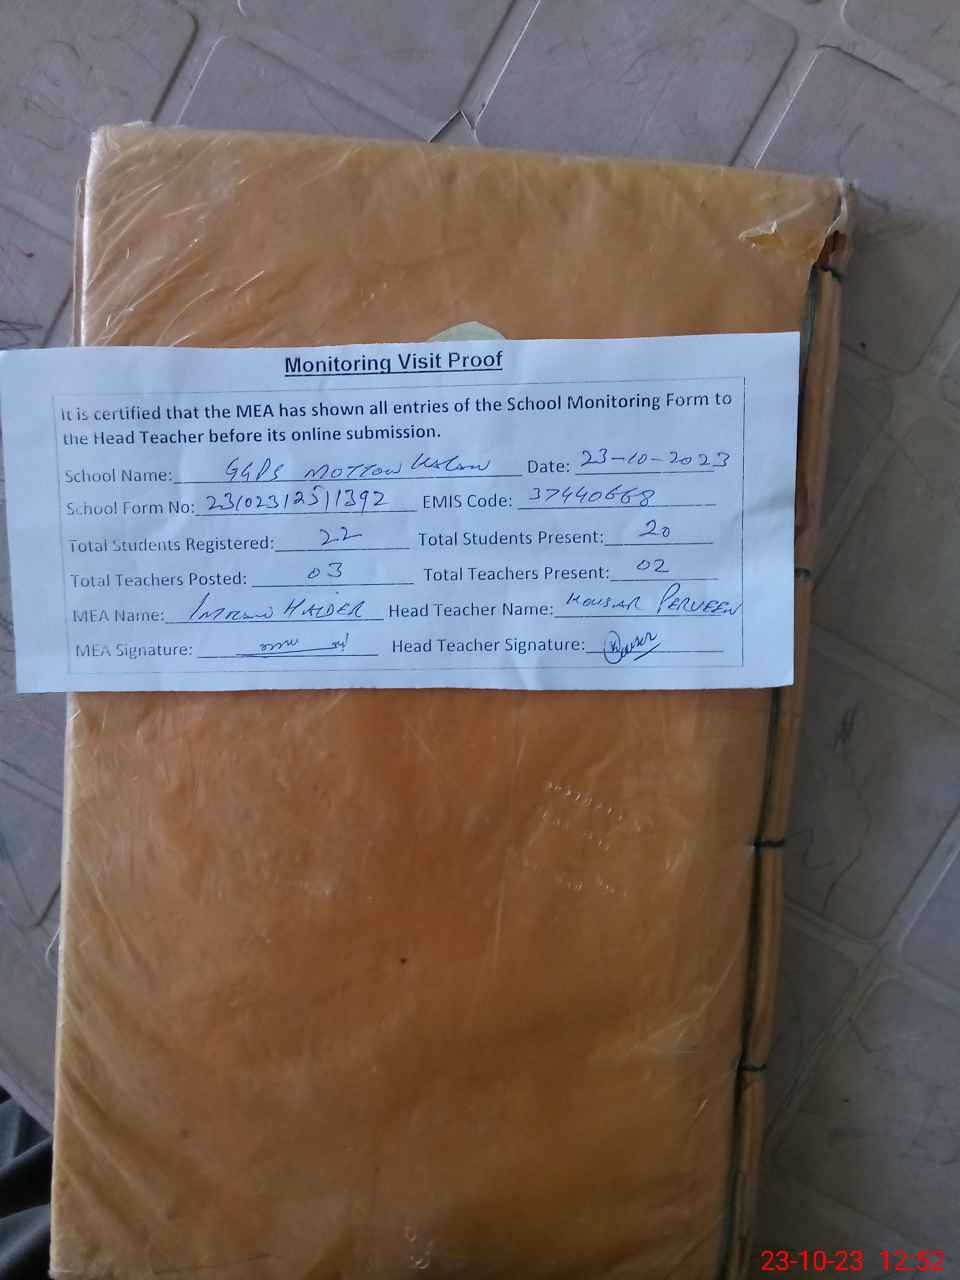 Monitoring Visit Proof
It is certified that the MEA has shown all entries of the School Monitoring Form to
the Head Teacher before its online submission.
School Name: GGPS MOTTOW Kalan Date: 23-10-2023
School Form No: 23102312511392 EMIS Code: 37440668
Total Students Registered: 22 Total Students Present: 20
Total Teachers Posted: 03 Total Teachers Present: 02
MEA Name: IMRAN HAIDER Head Teacher Name: KOUSAR PERVEEN
MEA Signature: Head Teacher Signature: Kousar
23-10-23 12:52